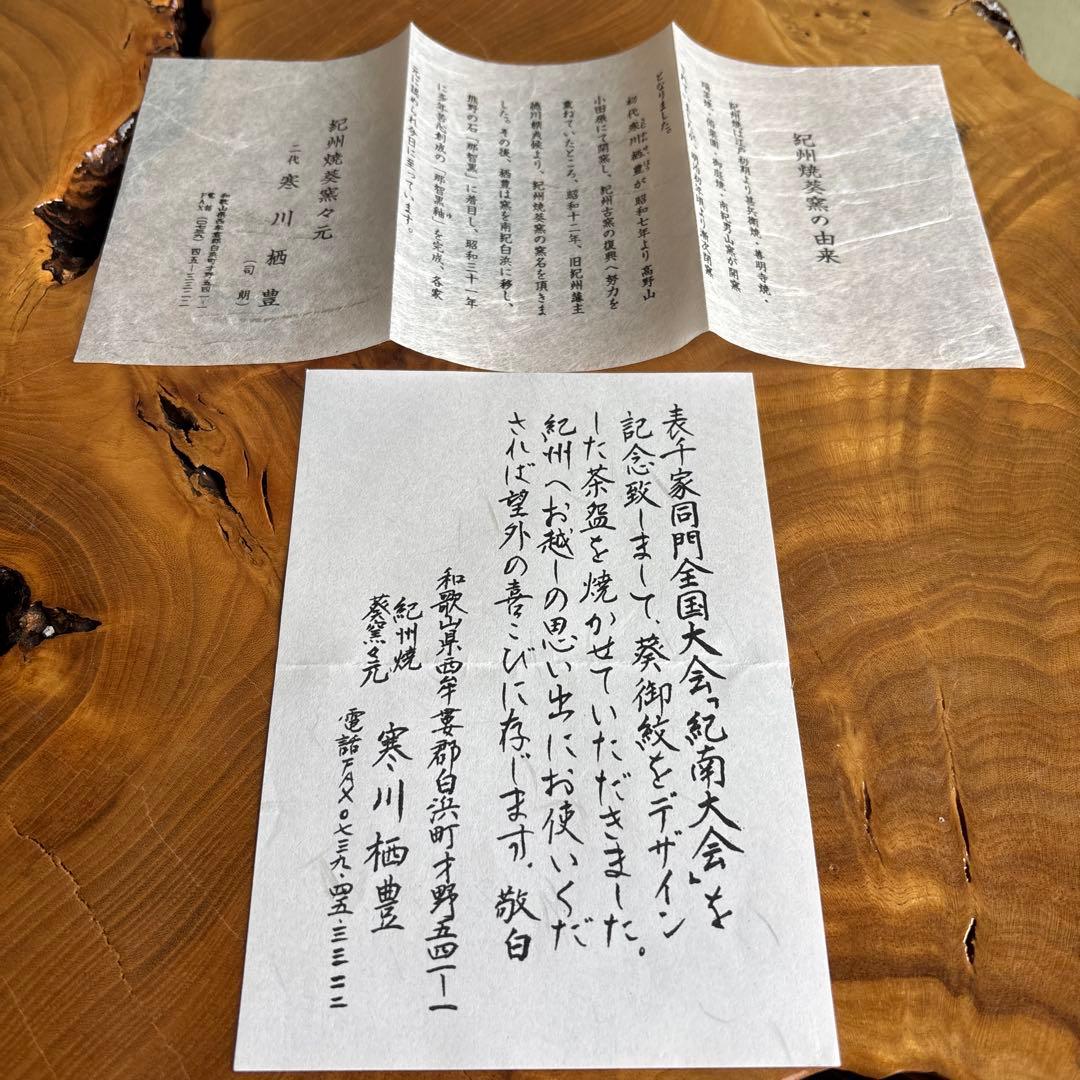 紀州焼葵窯の由来
紀州焼は江戸初期より甚兵衛焼・善明寺焼・
瑞芝焼・偕楽園・御庭焼・南紀男山窯が開窯
明治初年頃より漸次閉窯
となりました。
初代寒川栖豊が昭和七年より高野山
小田原にて開窯し、紀州古窯の復興へ努力を
重ねていたところ、昭和十二年、旧紀州藩主
徳川頼貞候より、紀州焼葵窯の窯名を頂きま
した。その後、栖豊は窯を南紀白浜に移し、
熊野の石「那智黒」に着目し、昭和三十一年
に多年苦心創成の「那智黒釉」を完成、各家
元に認められ今日に至っています。
紀州焼葵窯々元
二代 寒川栖豊
(司朗)
和歌山県西牟婁郡白浜町才野一五四一ー一
電話 FAX (〇七三九)四五ー三三二二
表千家同門全国大会「紀南大会」を
記念致しまして、葵御紋をデザイン
した茶盌を焼かせていただきました。
紀州へお越しの思い出にお使いくだ
されば望外の喜こびに存じます。敬白
和歌山県西牟婁郡白浜町才野五四一ー一
紀州焼
葵窯々元 寒川栖豊
電話FAX〇七三九・四五・三三二二